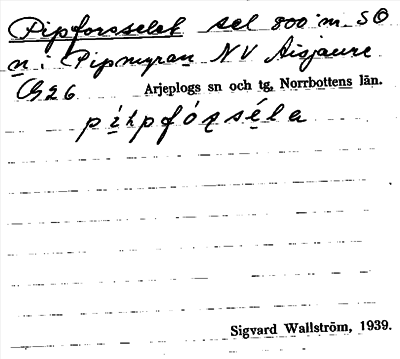 Pipforsselet sel 800 m SO
n. i Pipmyran NV Aisjaure
C926
Arjeplogs sn och tg, Norrbottens län.
píhpfórséla
Sigvard Wallström, 1939.